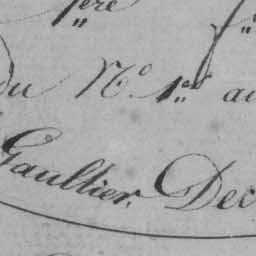 1ère
du N° 1er au
Gaultier. Dec